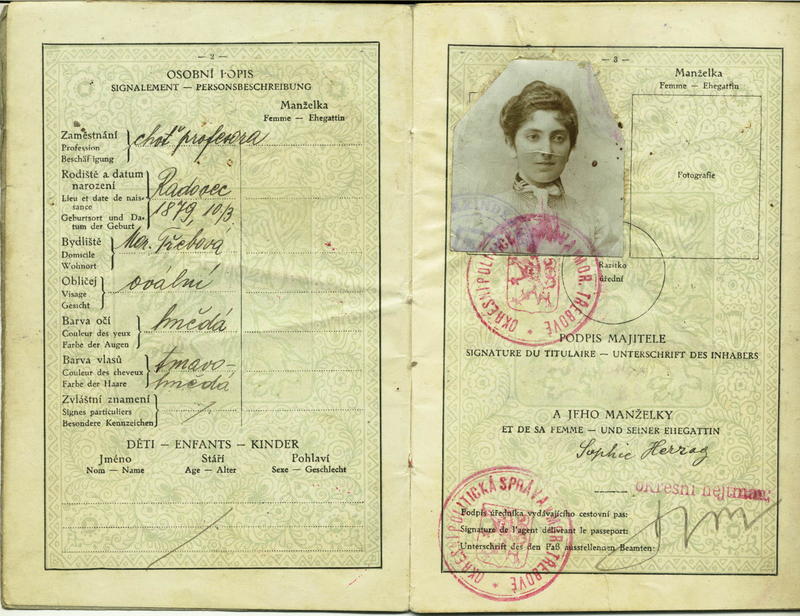 — 2 —
OSOBNÍ POPIS
SIGNALEMENT — PERSONSBESCHREIBUNG
Manželka
Femme — Ehegattin
Zaměstnání
Profession
Beschäf igung
choť profesora
Rodiště a datum
narození
Lieu et date de nais-
sance
Geburtsort und Da-
tum der Geburt
Radovec
1879, 10/3
Bydliště
Domicile
Wohnort
Mor. Třebová
Obličej
Visage
Gesicht
ovální
Barva očí
Couleur des yeux
Farbe der Augen
hnědá
Barva vlasů
Couleur des cheveux
Farbe der Haare
tmavo-
hnědá
Zvláštní znamení
Signes particuliers
Besondere Kennzeichen
DĚTI — ENFANTS — KINDER
Jméno Stáří Pohlaví
Nom — Name Age — Alter Sexe — Geschlecht
— 3 —
Manželka
Femme — Ehegattin
Fotografie
Razítko
úřední
OKRESNÍ POLITICKÁ SPRÁVA MOR. TŘEBOVÉ
PODPIS MAJITELE
SIGNATURE DU TITULAIRE — UNTERSCHRIFT DES INHABERS
A JEHO MANŽELKY
ET DE SA FEMME — UND SEINER EHEGATTIN
Sophie Herzog
okresní hejtman:
Podpis úředníka vydávajícího cestovní pas:
Signature de l'agent délivrant le passeport:
Unterschrift des den Paß ausstellenden Beamten:
OKRESNÍ POLITICKÁ SPRÁVA MOR. TŘEBOVÉ